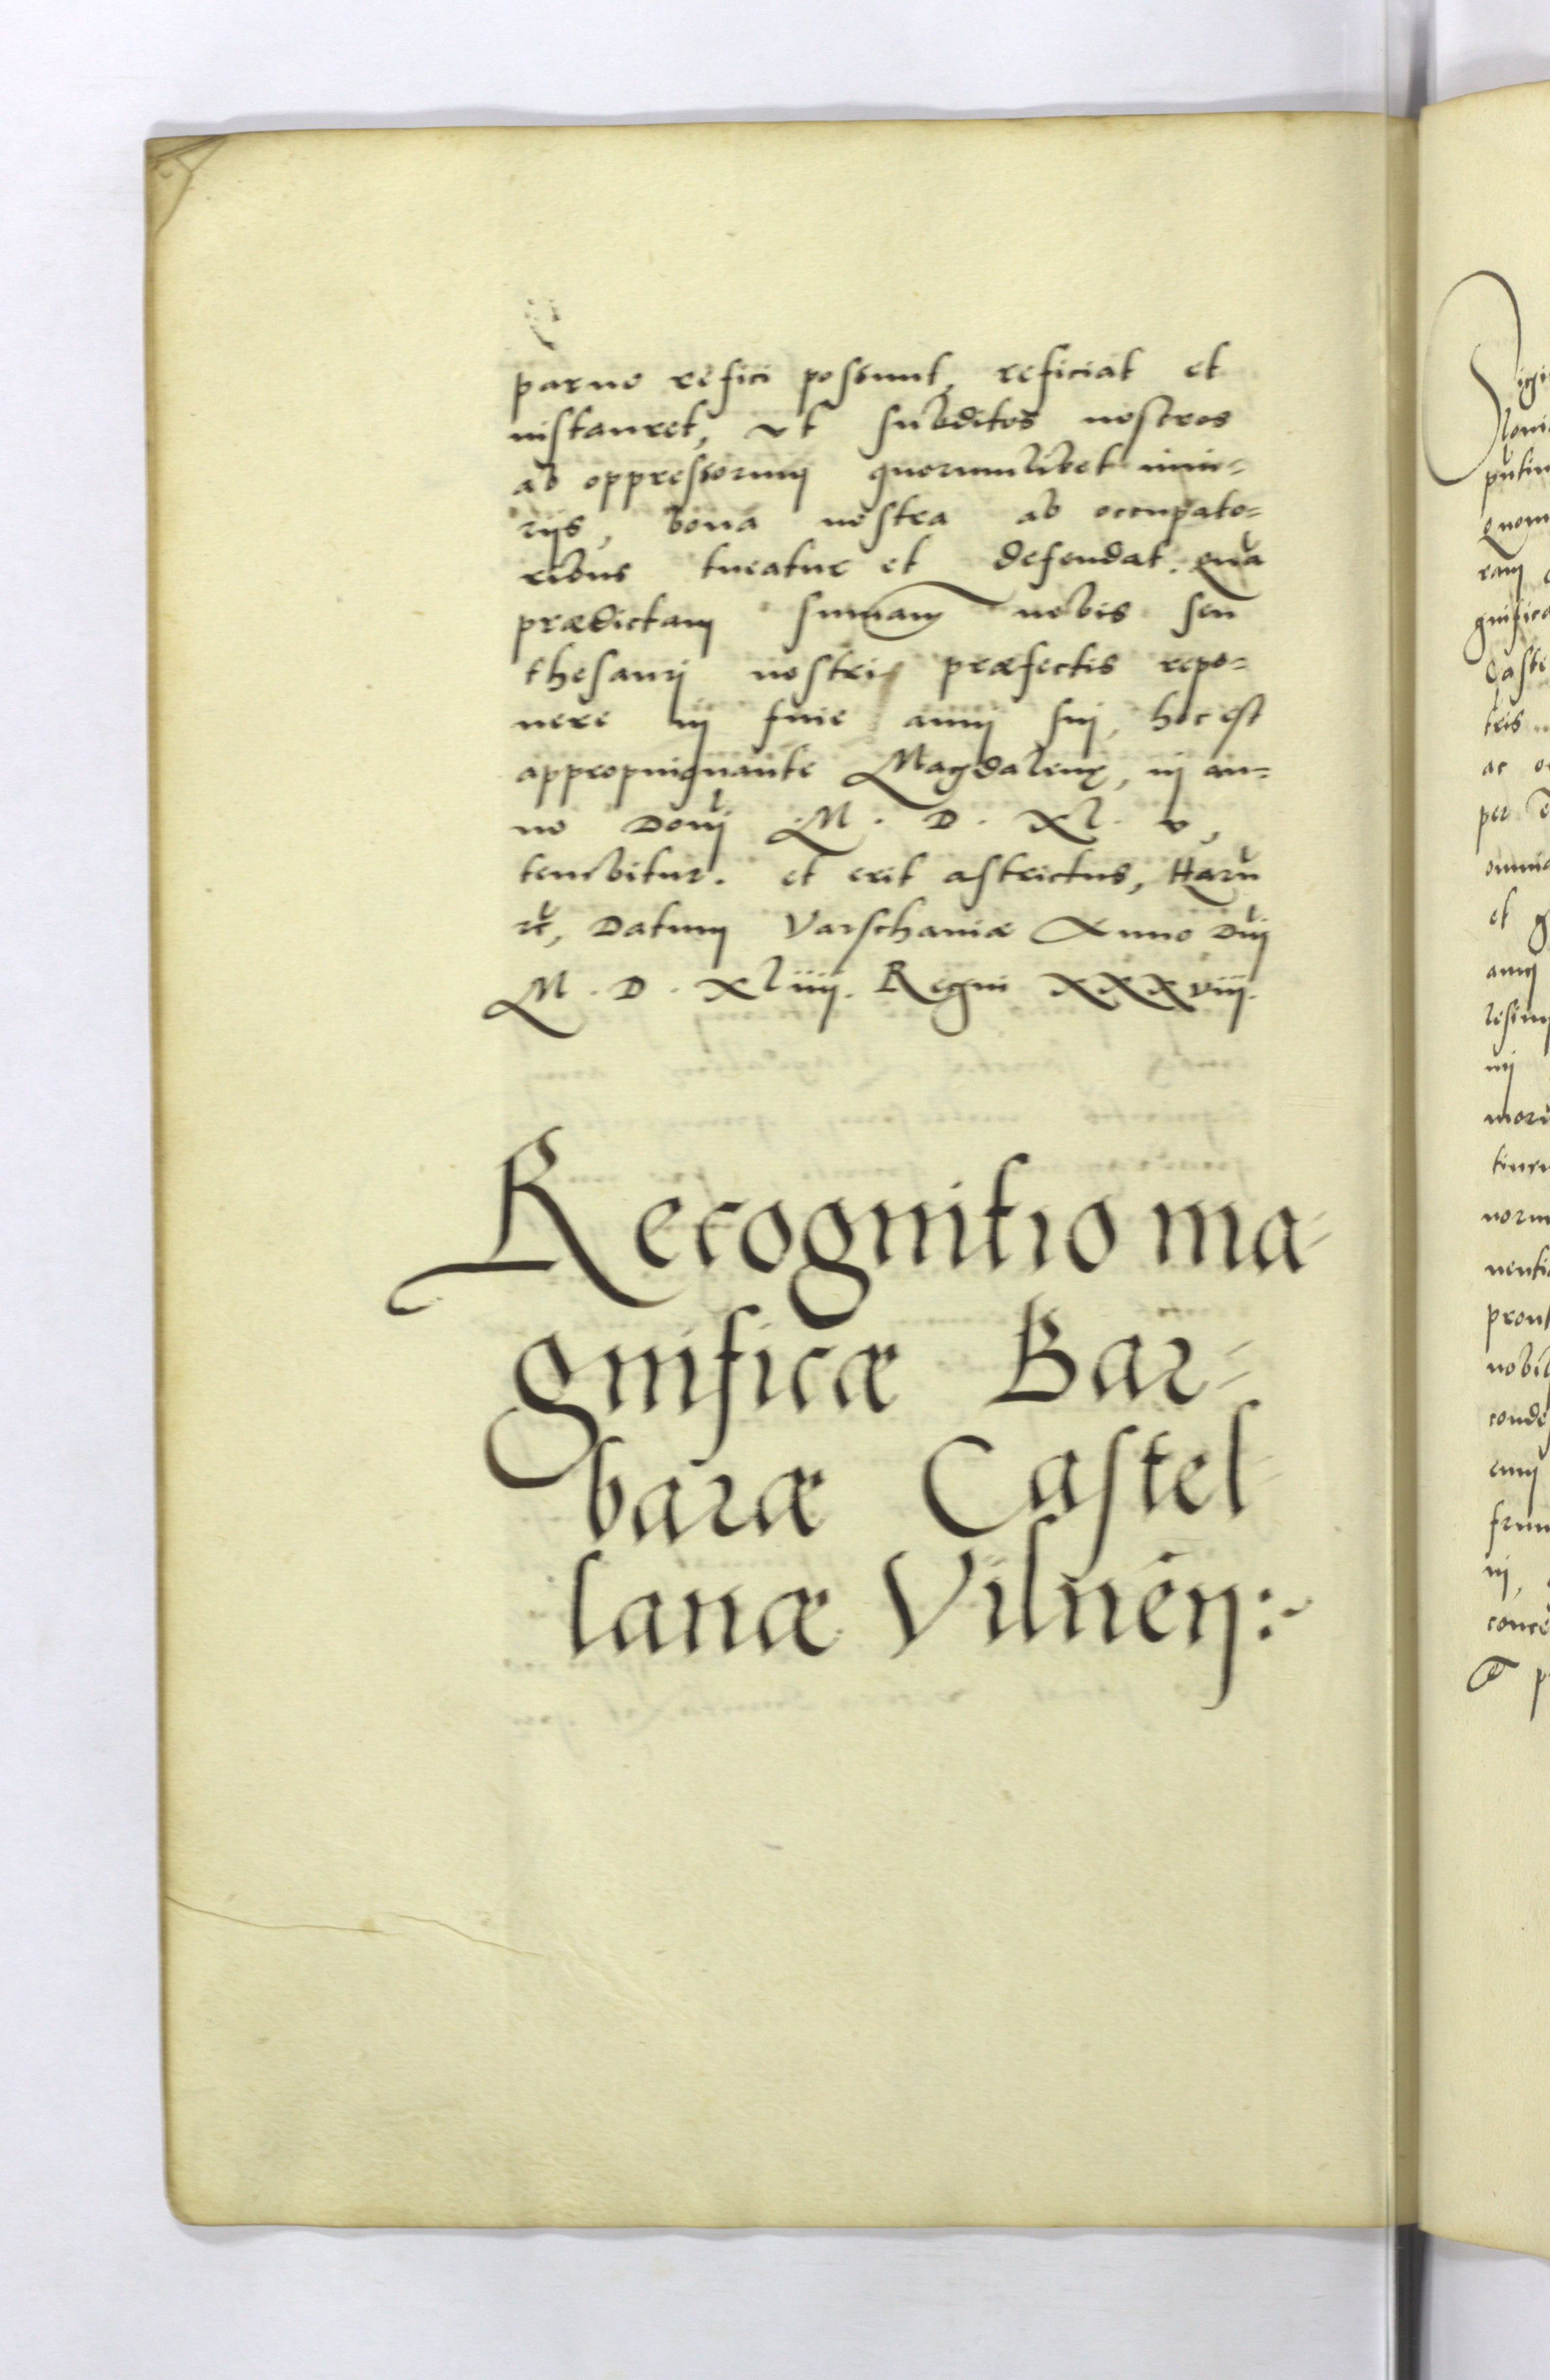 paruo refici possunt, reficiat et
instauret, vt subditos nostros
ab oppressorum quorumlibet iniu=
rijs, bona nostra ab occupato=
ribus tueatur et defendat. Quā
prædictam sumam nobis seu
thesauri nostri præfectis repo=
nere in fine anni sui, hoc est
appropinquante Magdalenę, in an=
no Domī M. D. xl. v,
tenebitur. et erit astrictus, Harū
rē, Datum Varschaniæ Anno Dnī
M. D. xliiii. Regni xxxviii.
Recognitio ma-
gnificæ Bar-
baræ Castel-
lanæ Vilnēn:~